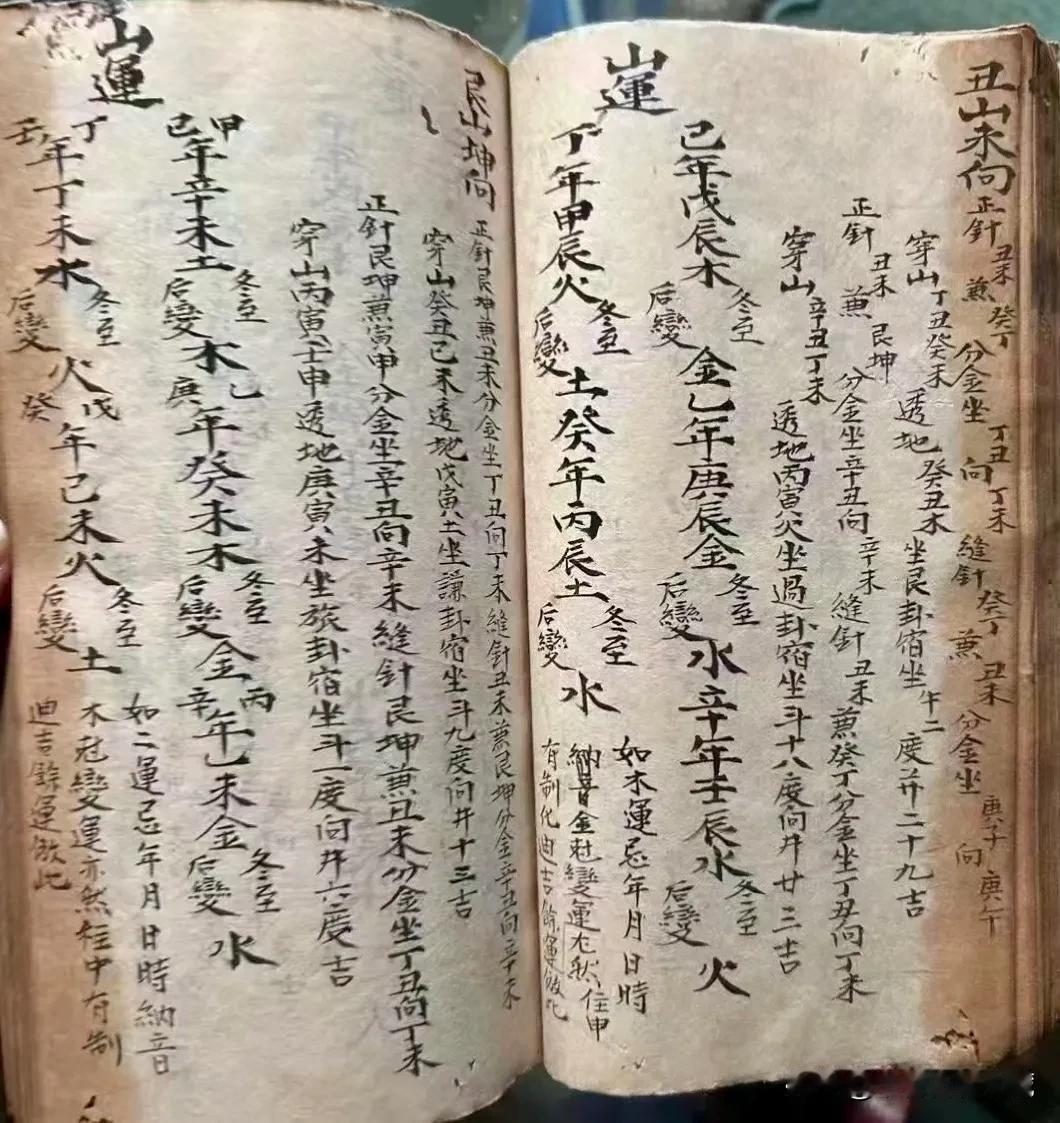 丑山未向正針丑未兼癸丁分金坐向丁丑丁未縫針癸丁兼丑未分金坐向庚子庚午
穿山丁丑癸未透地癸丑木坐艮卦宿坐牛二度井二十九吉
正針丑未兼艮坤分金坐辛丑向辛未縫針丑未兼癸丁分金坐丁丑向丁未
穿山辛丑丁未透地丙寅火坐過卦宿坐斗十八度向井廿三吉
山運
己年戊辰木冬至后變金乙年庚辰金冬至后變水辛年壬辰水冬至后變火
丁年甲辰火冬至后變土癸年丙辰土冬至后變水
如木運忌年月日時
納音金尅變運尤然住申
有制化迪吉餘運倣此
艮山坤向正針艮坤兼丑未分金坐丁丑向丁未縫針丑未兼艮坤分金辛丑向辛未
穿山癸丑己未透地戊寅土坐謙卦宿坐斗九度向井十三吉
正針艮坤兼寅甲分金坐辛丑向辛未縫針艮坤兼丑未分金坐丁丑向丁未
穿山丙寅壬申透地庚寅未坐旅卦宿坐斗一度向井六度吉
山運
甲己年辛未土冬至后變木乙庚年癸未木冬至后變金丙辛年乙未金冬至后變水
丁壬年丁未水冬至后變火戊癸年己未火冬至后變土
如二運忌年月日時納音
木尅變運亦然經中有制
迪吉餘運倣此